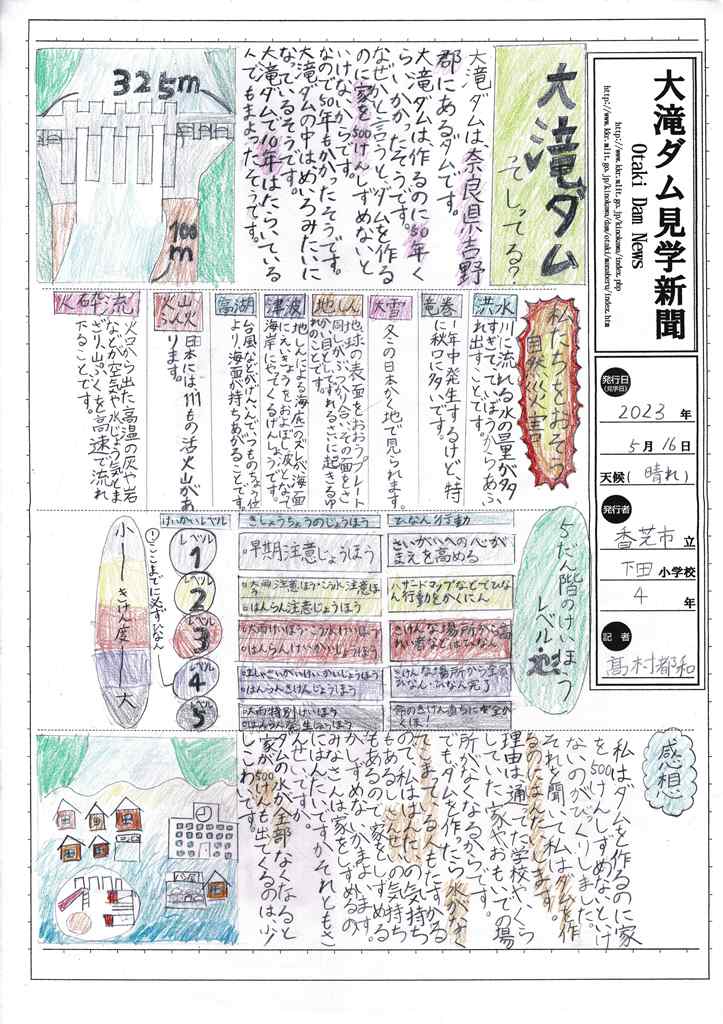 大滝ダム見学新聞
Otaki Dam News
http://www.kkr.mlit.go.jp/kinokawa/index.php
発行日
(見学日)
2023年
5月16日
天候(晴れ)
発行者
香芝市立
下田小学校
4年
記者
髙村都和
大滝ダム
てしってる?
大滝ダムは、奈良県吉野
郡にあるダムです。
大滝ダムは作るのに50年く
らいかかったそうです。
なぜかと言うと、ダムを作る
のに家を500けんしずめないと
いけないからです。
なので50年もかかったそうです。
大滝ダムの中はめいろみたいに
なっているそうです。
大滝ダムで10年はたらいている
人でもまよったそうです。
325m
100m
私たちをおそう
自然災害
洪水
川に流れる水の量が多
すぎて、ていぼうからあふ
れ出すことです。
竜巻
1年中発生するけど、特
に秋口に多いです。
大雪
冬の日本かい地で見られます。
地しん
地球の表面をおおうプレート
同しがぶつかり合い、その面をさ
かい目としてずれるさいに起きるゆ
れのことです。
津波
地しんによる海底のズレが海面
にえいきょうをおよぼし、波となって
海岸にやってくるげんしょうです。
高潮
台風などがげんいんでいつものちょう位
より、海面が持ちあがることです。
火山ふん火
日本には111もの活火山があ
ります。
火砕流
火口から出た高温の灰や岩
などが空気や水じょう気とま
ざり、山ふくを高速で流れ
下ることです。
5だん階のけいほう
レベル
けいかいレベル
きしょうちょうのじょうほう
ひなん行動
レベル1
早期注意じょうほう
さいがいへの心が
まえを高める
レベル2
大雨注意ほう・こう水注意ほう
はんらん注意じょうほう
ハザードマップなどでひな
ん行動をかくにん
レベル3
大雨けいほう・こう水けいほう
はんらんけいかいじょうほう
きけんな場所から高
れい者などはひなん
レベル4
土しゃさいがいけいかいじょうほう
はんらんきけんじょうほう
きけんな場所から全員
ひなん・ひなん完了
レベル5
大雨特別けいほう
はんらん発生じょうほう
命のきけん直ちに安全か
くほ!
!ここまでに必ずひなん
小─きけん度─大
感想
私はダムを作るのに家
を500けんしずめないといけ
ないのがびっくりしました。
それを聞いて私はダムを作
るのにはんたいします。
理由は、通ってた学校やくら
していた家やおもいでの場
所がなくなるからです。
でもダムを作ったら水がなく
てこまってる人もたすかる
ので、私ははんたいの気持ち
もあるし、さんせいの気持ち
もあるので、家をしずめる
かしずめないかまよいます。
みなさんは家をしずめるの
にはんたいですか、それともさ
んせいですか。
ダムの水が全部なくなると
家が500けんも出てくるのは少
しこわいです。